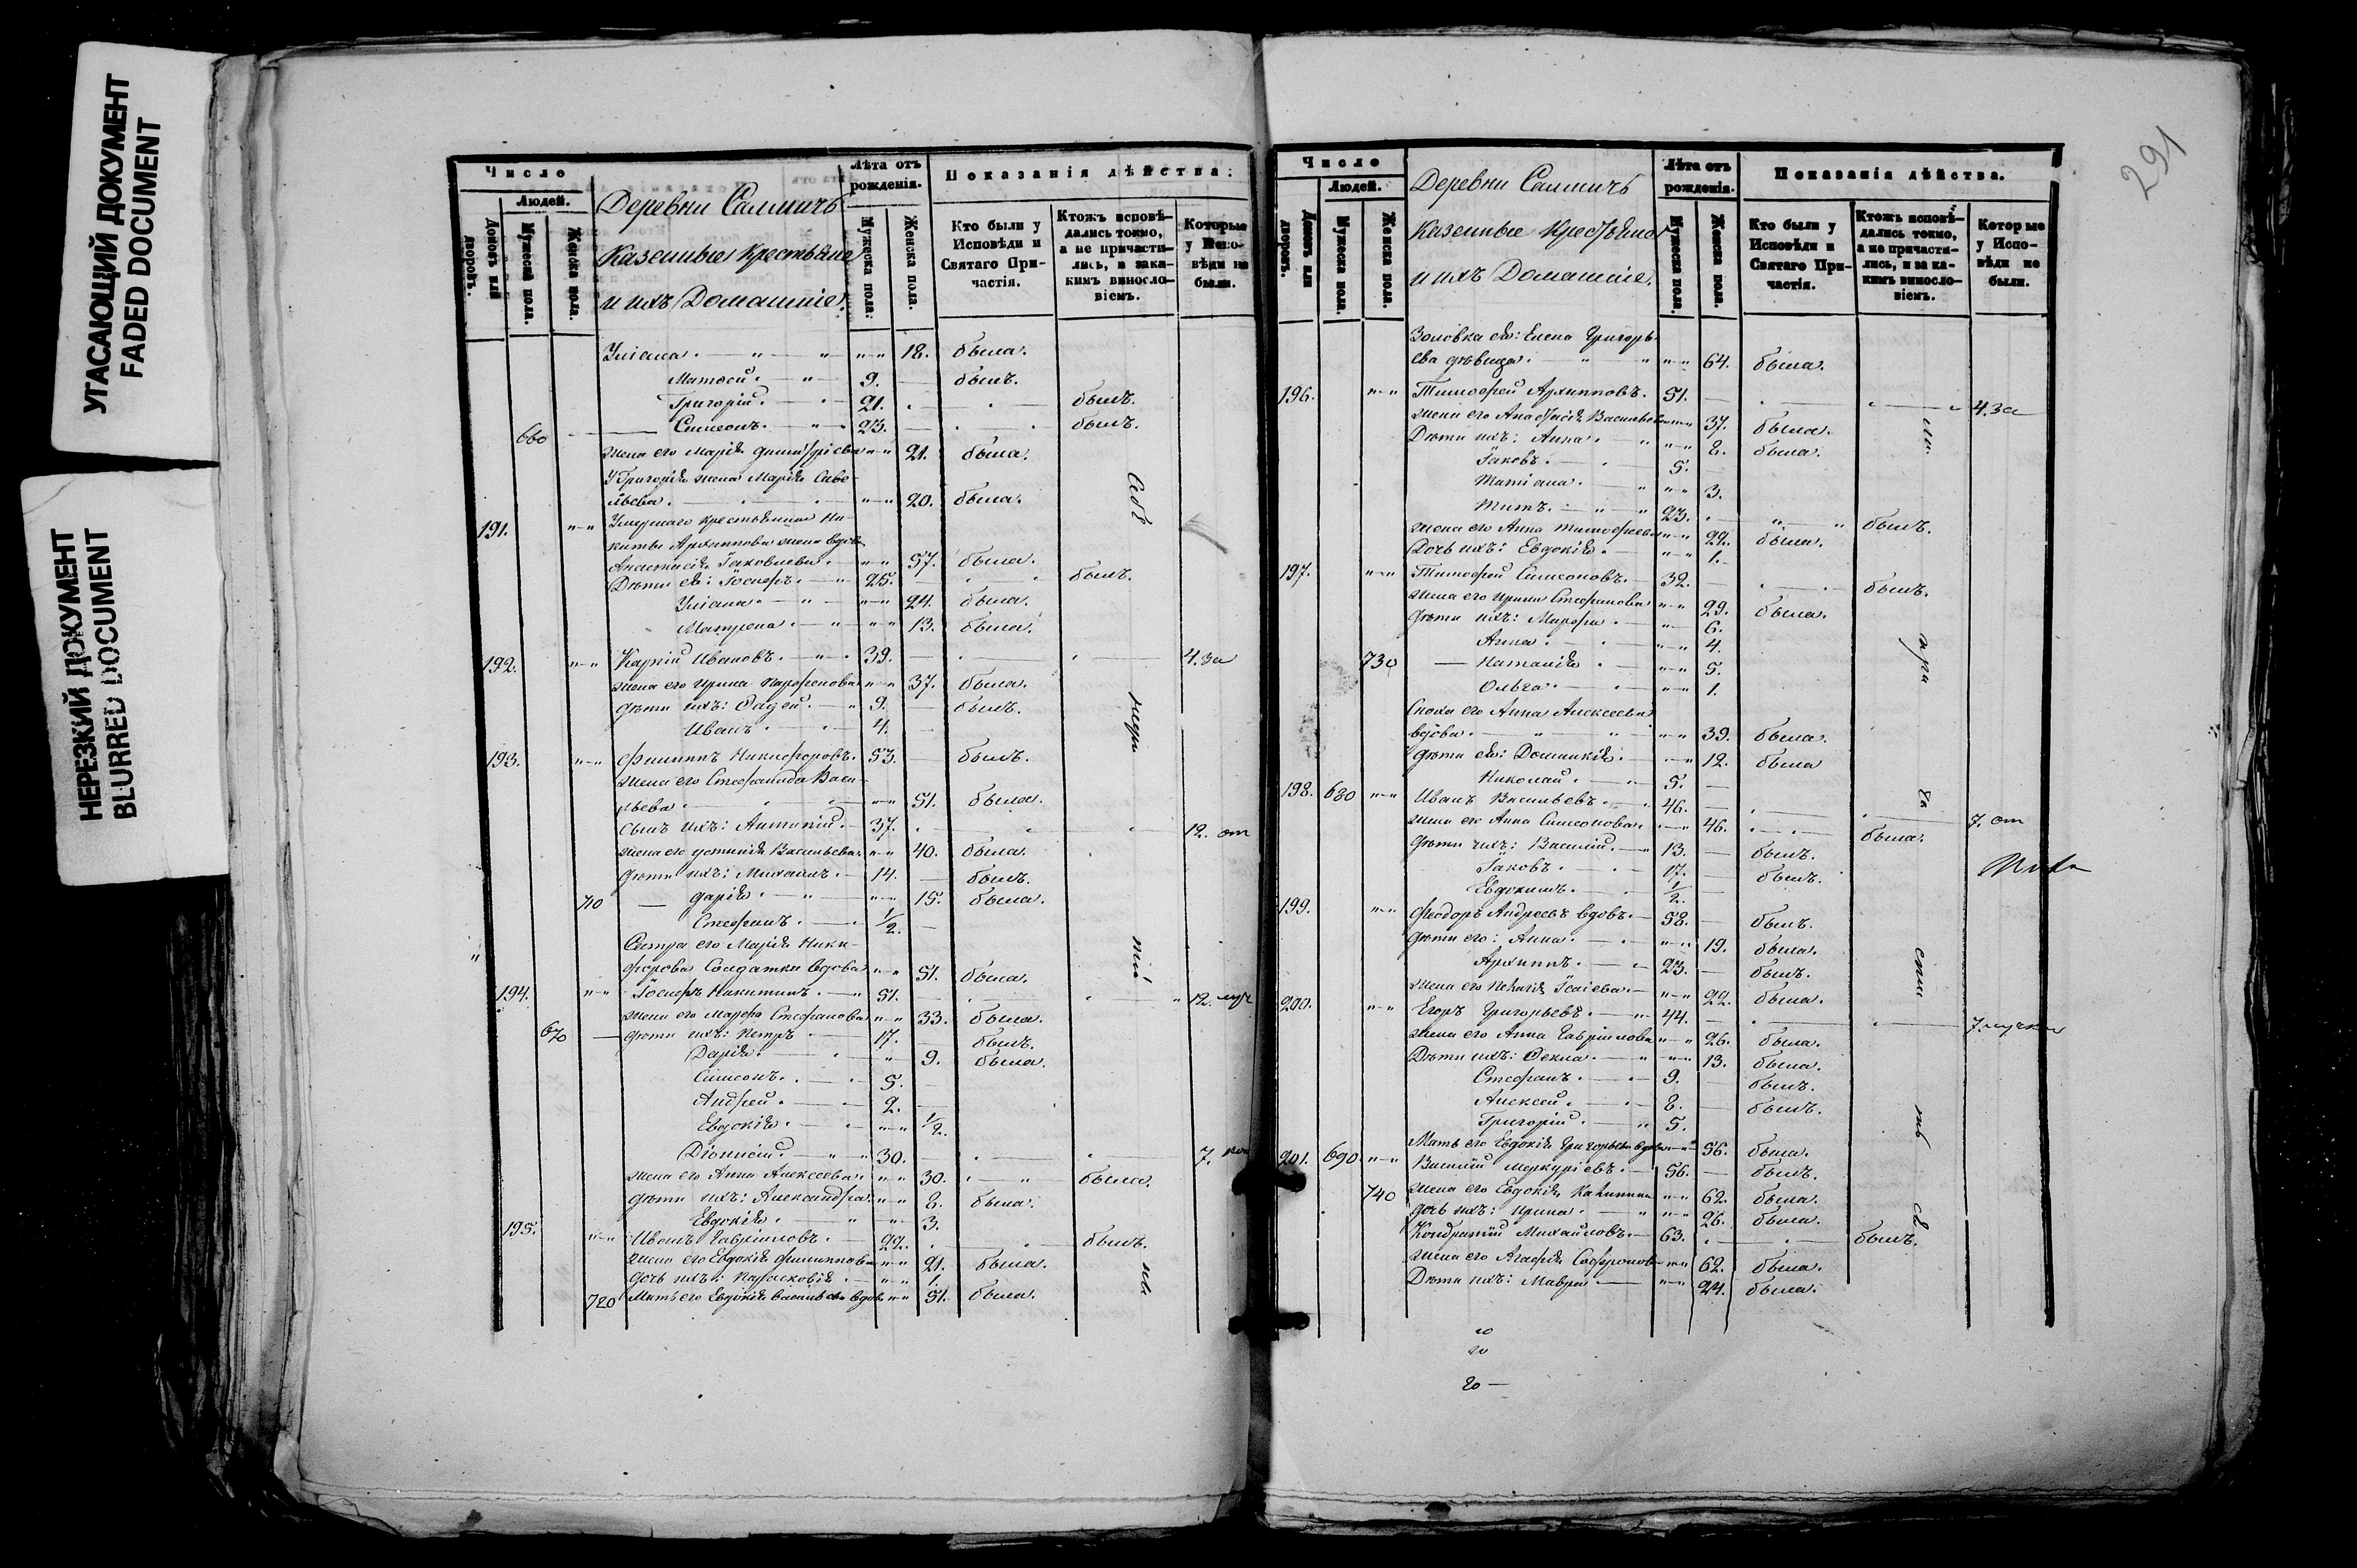 УГАСАЮЩИЙ ДОКУМЕНТ
FADED DOCUMENT
НЕРЕЗКИЙ ДОКУМЕНТ
BLURRED DOCUMENT
Число
Людей.
Домовъ или дворовъ.
Мужеска пола.
Женска пола.
Деревни
казенные крестьяне
и ихъ Домашніе.
Лѣта отъ рожденія.
Мужеска пола.
Женска пола.
Показанія дѣйства.
Кто были у Исповѣди и Святаго Причастія.
Ктожъ исповѣдались токмо, а не причастились, и за какимъ винословіемъ.
Которые у Исповѣди не были.
Уліана. 18. была.
Матѳей. 9. былъ.
Григорій. 21. былъ.
660 Симеонъ. 23. былъ.
жена его Марія Димитріева 21. была.
У Григорія жена Марія Саве-
льева. 20. была.
191. Умершаго крестьянина Ни-
киты Архиппова жена вдова
Анастасія Іаковлева. 57. была.
Дѣти ея: Іосифъ. 25. былъ.
Уліана. 24. была.
Матрона. 13. была.
192. Карпій Ивановъ. 39. 4. за
жена его Ирина Парѳенова 37. была.
дѣти ихъ: Ѳадей. 9. былъ.
Иванъ. 4.
193. Филиппъ Никифоровъ. 53. былъ.
жена его Стефанида Васи-
льева. 51. была.
сынъ ихъ: Антипій. 37. 12. от
жена его Устинія Васильева. 40. была.
дѣти ихъ: Михаилъ. 14. былъ.
710 Дарія. 15. была.
Стефанъ. 1/2.
Сестра его Марія Ники-
форова Солдатка вдова 51. была.
194. Іосифъ Никитинъ. 51. 12.
жена его Марѳа Стефанова 33. была.
670 дѣти ихъ: Петръ 17. былъ.
Дарія. 9. была.
Симеонъ. 5.
Андрей. 2.
Евдокія. 1/2.
Діонисій. 30. 7.
жена его Анна Алексеева. 30. была.
дѣти ихъ: Александра 8. была.
Евдокія. 3.
195. Иванъ Гавріиловъ. 22. былъ.
жена его Евдокія Филиппова 21. была.
дочь ихъ: Парасковія. 1.
720 Мать его Евдокія Васильева вдова 51. была.
291
Число
Людей.
Домовъ или дворовъ.
Мужеска пола.
Женска пола.
Деревни
казенные крестьяне
и ихъ Домашніе.
Лѣта отъ рожденія.
Мужеска пола.
Женска пола.
Показанія дѣйства.
Кто были у Исповѣди и Святаго Причастія.
Ктожъ исповѣдались токмо, а не причастились, и за какимъ винословіемъ.
Которые у Исповѣди не были.
Золовка ея: Елена Григорь-
ева дѣвица. 64. была.
196. Тимофей Архипповъ. 51. 4. за
жена его Анастасія Васильева 37. была.
Дѣти ихъ: Анна. 8. была.
Іаковъ. 5.
Татіана. 3.
Титъ. 23. былъ.
жена его Анна Тимофеева 22. была.
дочь ихъ: Евдокія. 1.
197. Тимофей Симеоновъ. 32. былъ.
жена его Ирина Стефанова 29. была.
дѣти ихъ: Марѳа. 6.
Анна. 4.
730 Наталія. 5.
Ольга. 1.
Сноха его Анна Алексеева
вдова. 39. была.
дѣти ея: Домникія. 12. была
Николай. 5.
198. 680 Иванъ Васильевъ. 46. 7. от
жена его Анна Симеонова. 46. была.
дѣти ихъ: Василій. 13. былъ.
Іаковъ. 17. былъ.
Евдокимъ. 1/2.
199. Ѳеодоръ Андреевъ вдовъ. 58. былъ.
дѣти его: Анна. 19. была.
Архиппъ. 23. былъ.
жена его Пелагія Ісаіева 22. была.
200. Егоръ Григорьевъ. 44. 7.
жена его Анна Гавріилова 26. была.
Дѣти ихъ: Ѳекла. 13. была.
Стефанъ. 9. былъ.
Алексей. 8. былъ.
Григорій. 5.
Мать его Евдокія Григорьева вдова 56. была.
201. 690 Василій Меркуріевъ. 56. былъ.
740 жена его Евдокія Калинина 62. была.
дочь ихъ: Ирина. 26. была.
Кондратій Михайловъ. 63. былъ.
жена его Агафія Софронова 62. была.
Дѣти ихъ: Мавра 24. была.
20
20
20